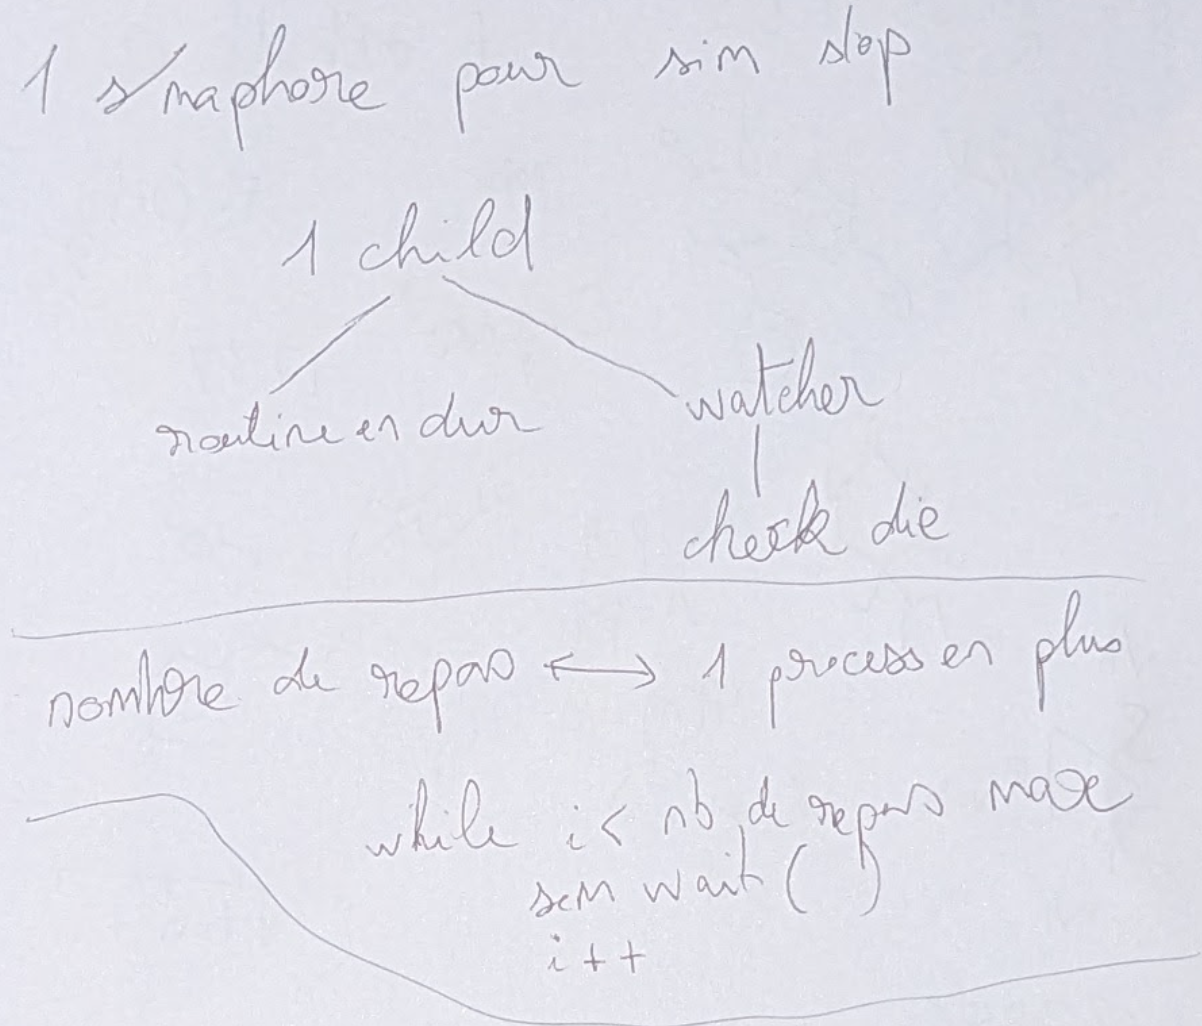 1 s'maphore pour sim stop
1 child
routine en dur
watcher
check die
nombre de repas ↔ 1 process en plus
while i < nb de repas max
sem wait ( )
i++